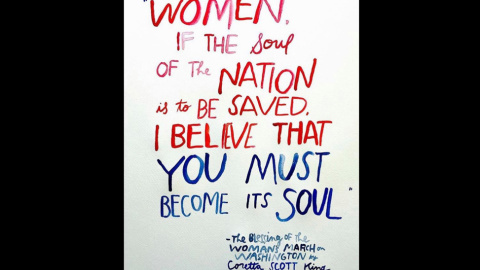 "WOMEN,
IF THE Soul
OF The NATION
is to BE SAVED,
I BELIEVE THAT
YOU MUST
BECOME ITS SOUL"
- The Blessing of the
WOMAN'S MARCH on
WASHINGTON by
Coretta SCOTT King-